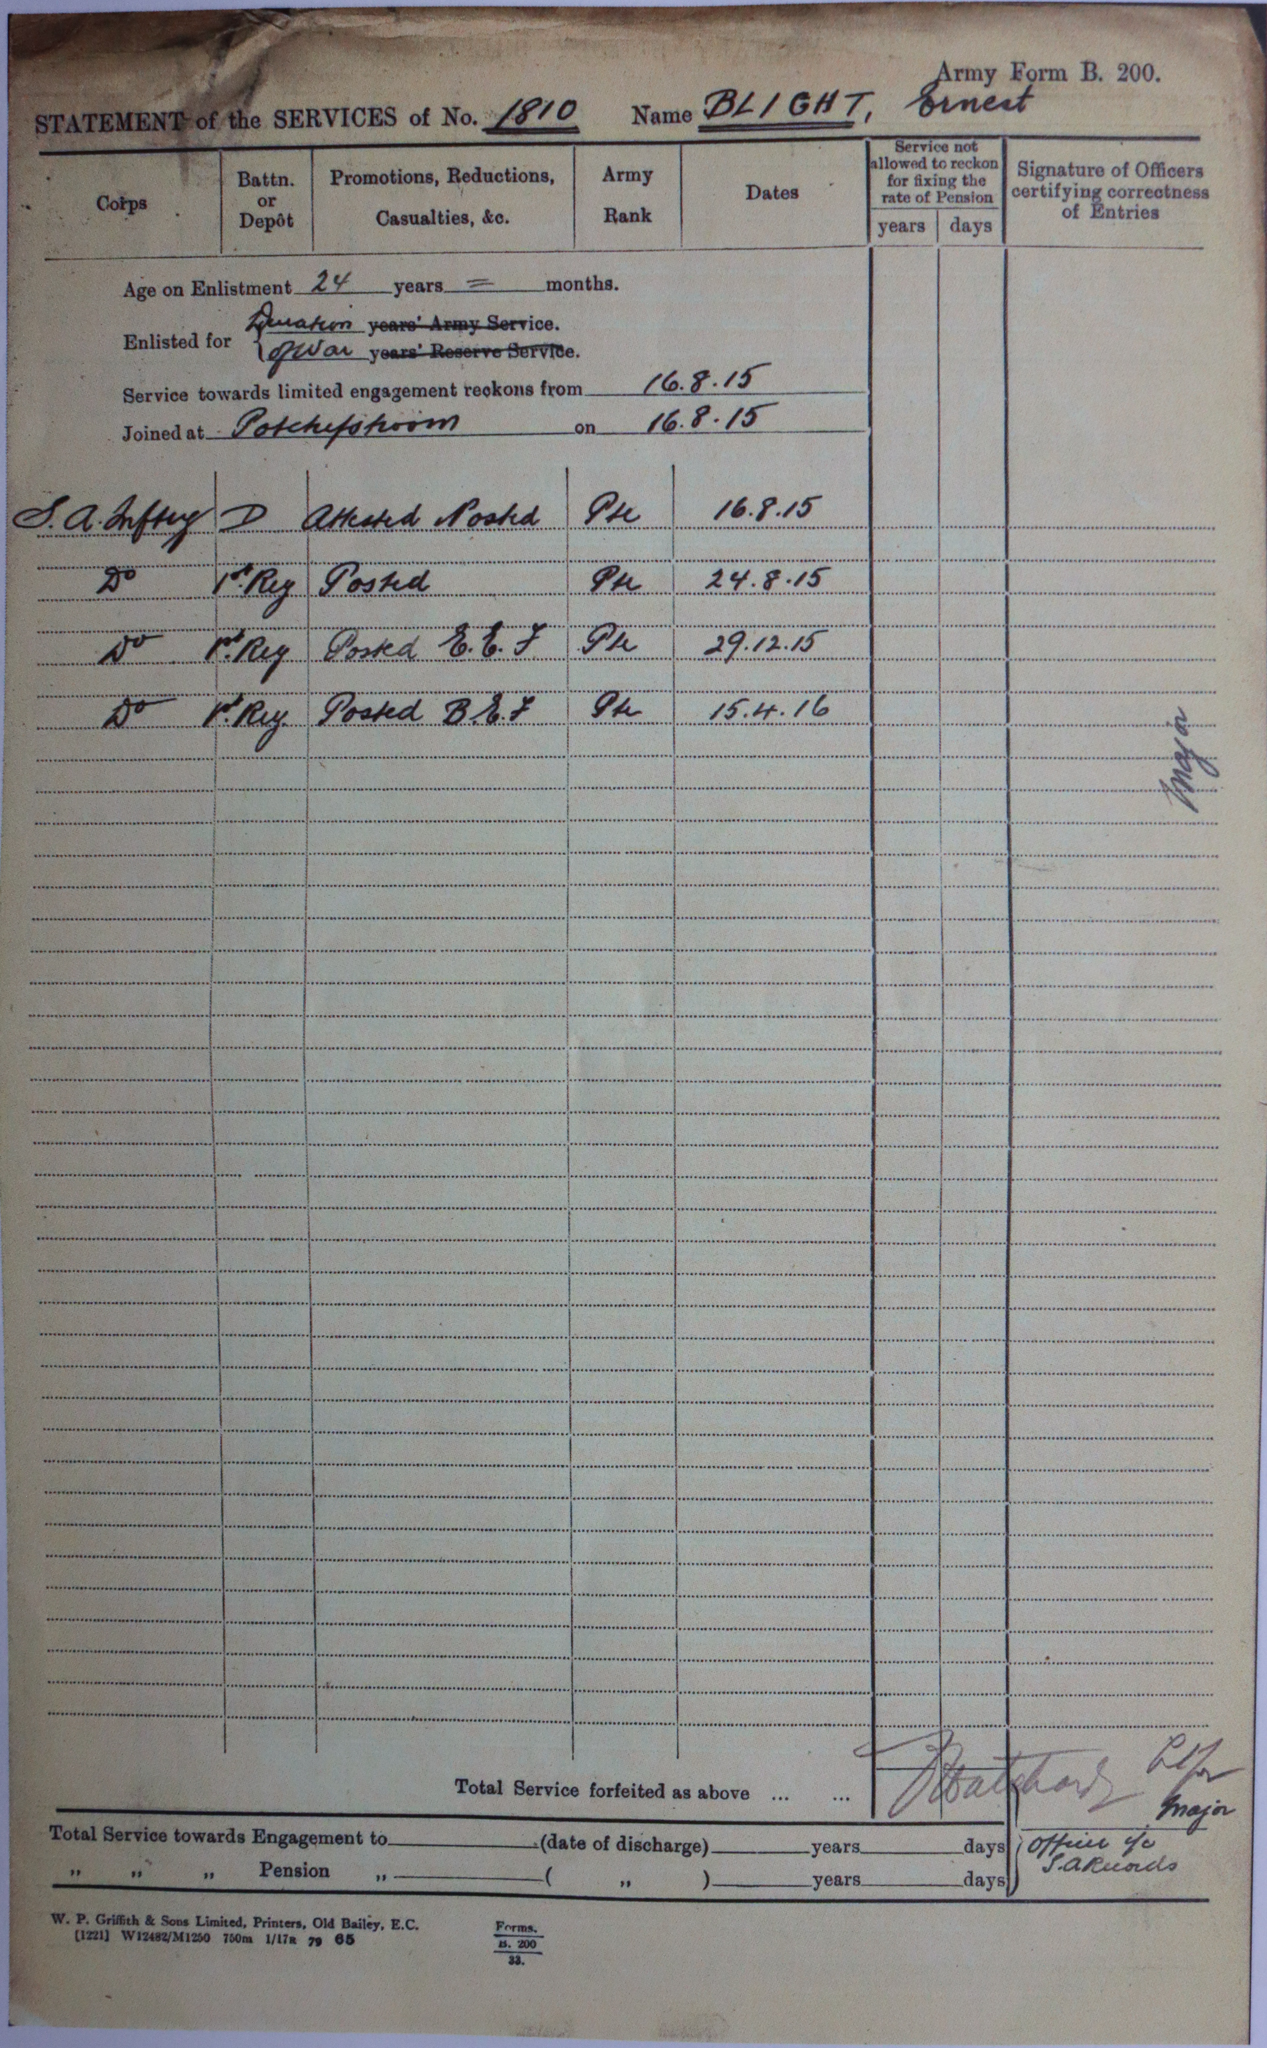 Army Form B. 200.
STATEMENT of the SERVICES of No. 1810 Name BLIGHT, Ernest
Corps
Battn. or Depôt
Promotions, Reductions, Casualties, &c.
Army Rank
Dates
Service not allowed to reckon for fixing the rate of Pension
years days
Signature of Officers certifying correctness of Entries
Age on Enlistment 24 years = months.
Enlisted for { Duration years' Army Service.
of War years' Reserve Service.
Service towards limited engagement reckons from 16.8.15
Joined at Potchefstroom on 16.8.15
S.A. Inftry D Attested Posted Pte 16.8.15
Do 1st Reg Posted Pte 24.8.15
Do 1st Reg Posted E.E.F Pte 29.12.15
Do 1st Reg. Posted B.E.F Pte 15.4.16
Major
Total Service forfeited as above ... ...
Major
Total Service towards Engagement to (date of discharge) years days
Officer i/c
" " " Pension " ( " ) years days
S.A Records
W. P. Griffith & Sons Limited, Printers, Old Bailey, E.C.
[1221] W12482/M1250 750m 1/17R 79 65
Forms.
B. 200
33.